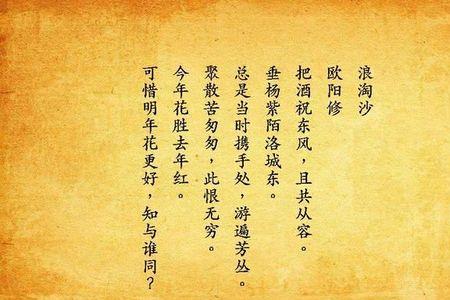 浪淘沙
欧阳修
把酒祝东风，且共从容。
垂杨紫陌洛城东。
总是当时携手处，游遍芳丛。
聚散苦匆匆，此恨无穷。
今年花胜去年红。
可惜明年花更好，知与谁同？